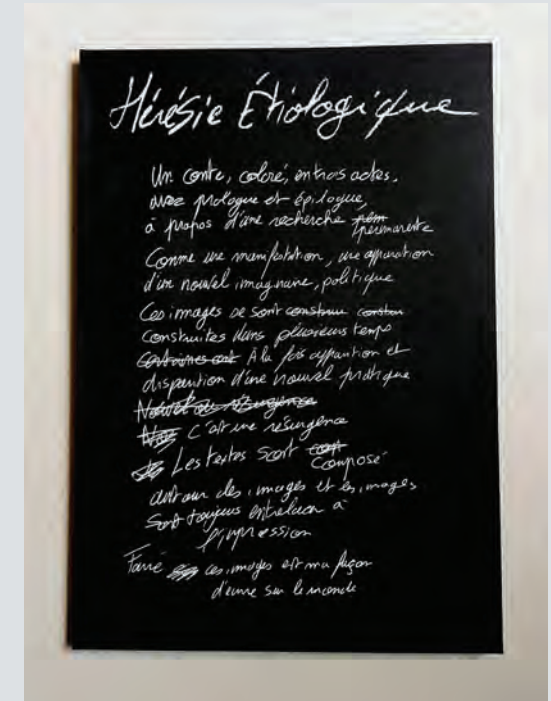 Hérésie Étiologique
Un conte, coloré, en trois actes,
avec prologue et épilogue,
à propos d'une recherche
permanente
Comme une manifestation, une apparation
d'un nouvel imaginaire, politique
Ces images se sont constru constru
Construites dans plusieurs temps
Certaines ont A la fois apparition et
disparition d'une nouvel pratique
Nouvel du résurgence
C'est une résurgence
Les textes sont
Composé
autour des images et les images
sont toujours
l'impression
Faire ces images est ma façon
sur le monde